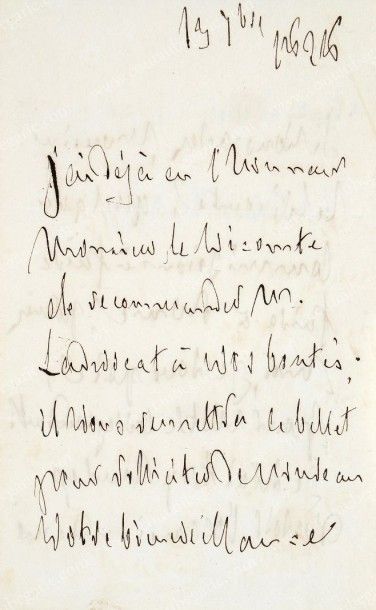 19 7bre 1826
j'ai déjà eu l'honneur
Monsieur le Vicomte
de recommander M.
Ladvocat à vos bontés;
il vous remettra ce billet
pour solliciter de nouveau
votre bienveillance